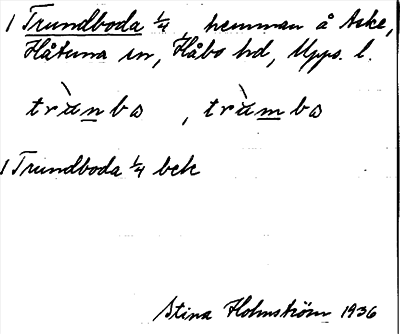 1 Trundboda 1/4, hemman å Aske,
Håtuna sn, Håbo hd, Upps. l.
trùnba, trùmba
1 Trundboda 1/4 bck
Stina Holmström 1936